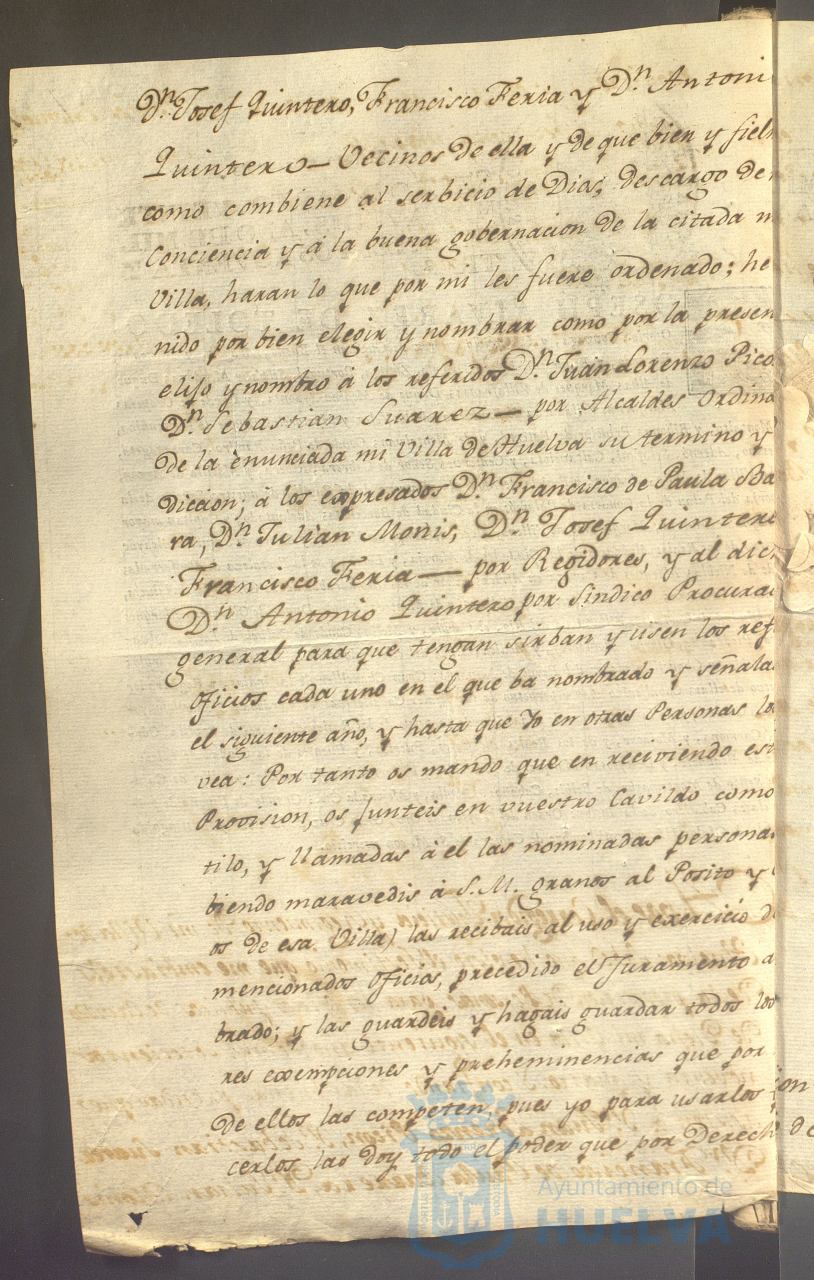 Dn. Josef Quintero, Francisco Feria y Dn. Antoni
Quintero — Vecinos de ella y de que bien y fiel
como combiene al serbicio de Dios, descargo de
Conciencia y á la buena gobernacion de la citada m
Villa, haran lo que por mi les fuere ordenado; he
nido por bien elegir y nombrar como por la presen
elijo y nombro á los referidos Dn. Juan Lorenzo Pico
Dn. Sebastian Suarez — por Alcaldes Ordina
de la enunciada mi Villa de Huelva su termino y
diccion; á los expresados Dn. Francisco de Paula Ba
ra, Dn. Julian Monis, Dn. Josef Quintero
Francisco Feria — por Regidores, y al dic
Dn. Antonio Quintero por Sindico Procurad
general para que tengan sirban y usen los ref
oficios cada uno en el que ba nombrado y señala
el siguiente año, y hasta que Yo en otras Personas lo
vea: Por tanto os mando que en reciviendo est
Provision, os junteis en vuestro Cavildo como
tilo, y llamadas á el las nominadas persona
biendo maravedis á S.M. granos al Posito y
os de esa Villa) las recibais al uso y exercicio d
mencionados oficios, precedido el Juramento a
brado; y las guardeis y hagais guardar todos los
res exempciones y preheminencias que por
de ellos las competen, pues yo para usarlos
cerlos las doy todo el poder que por Derech
ion
de
Ayuntamiento de
HUELVA